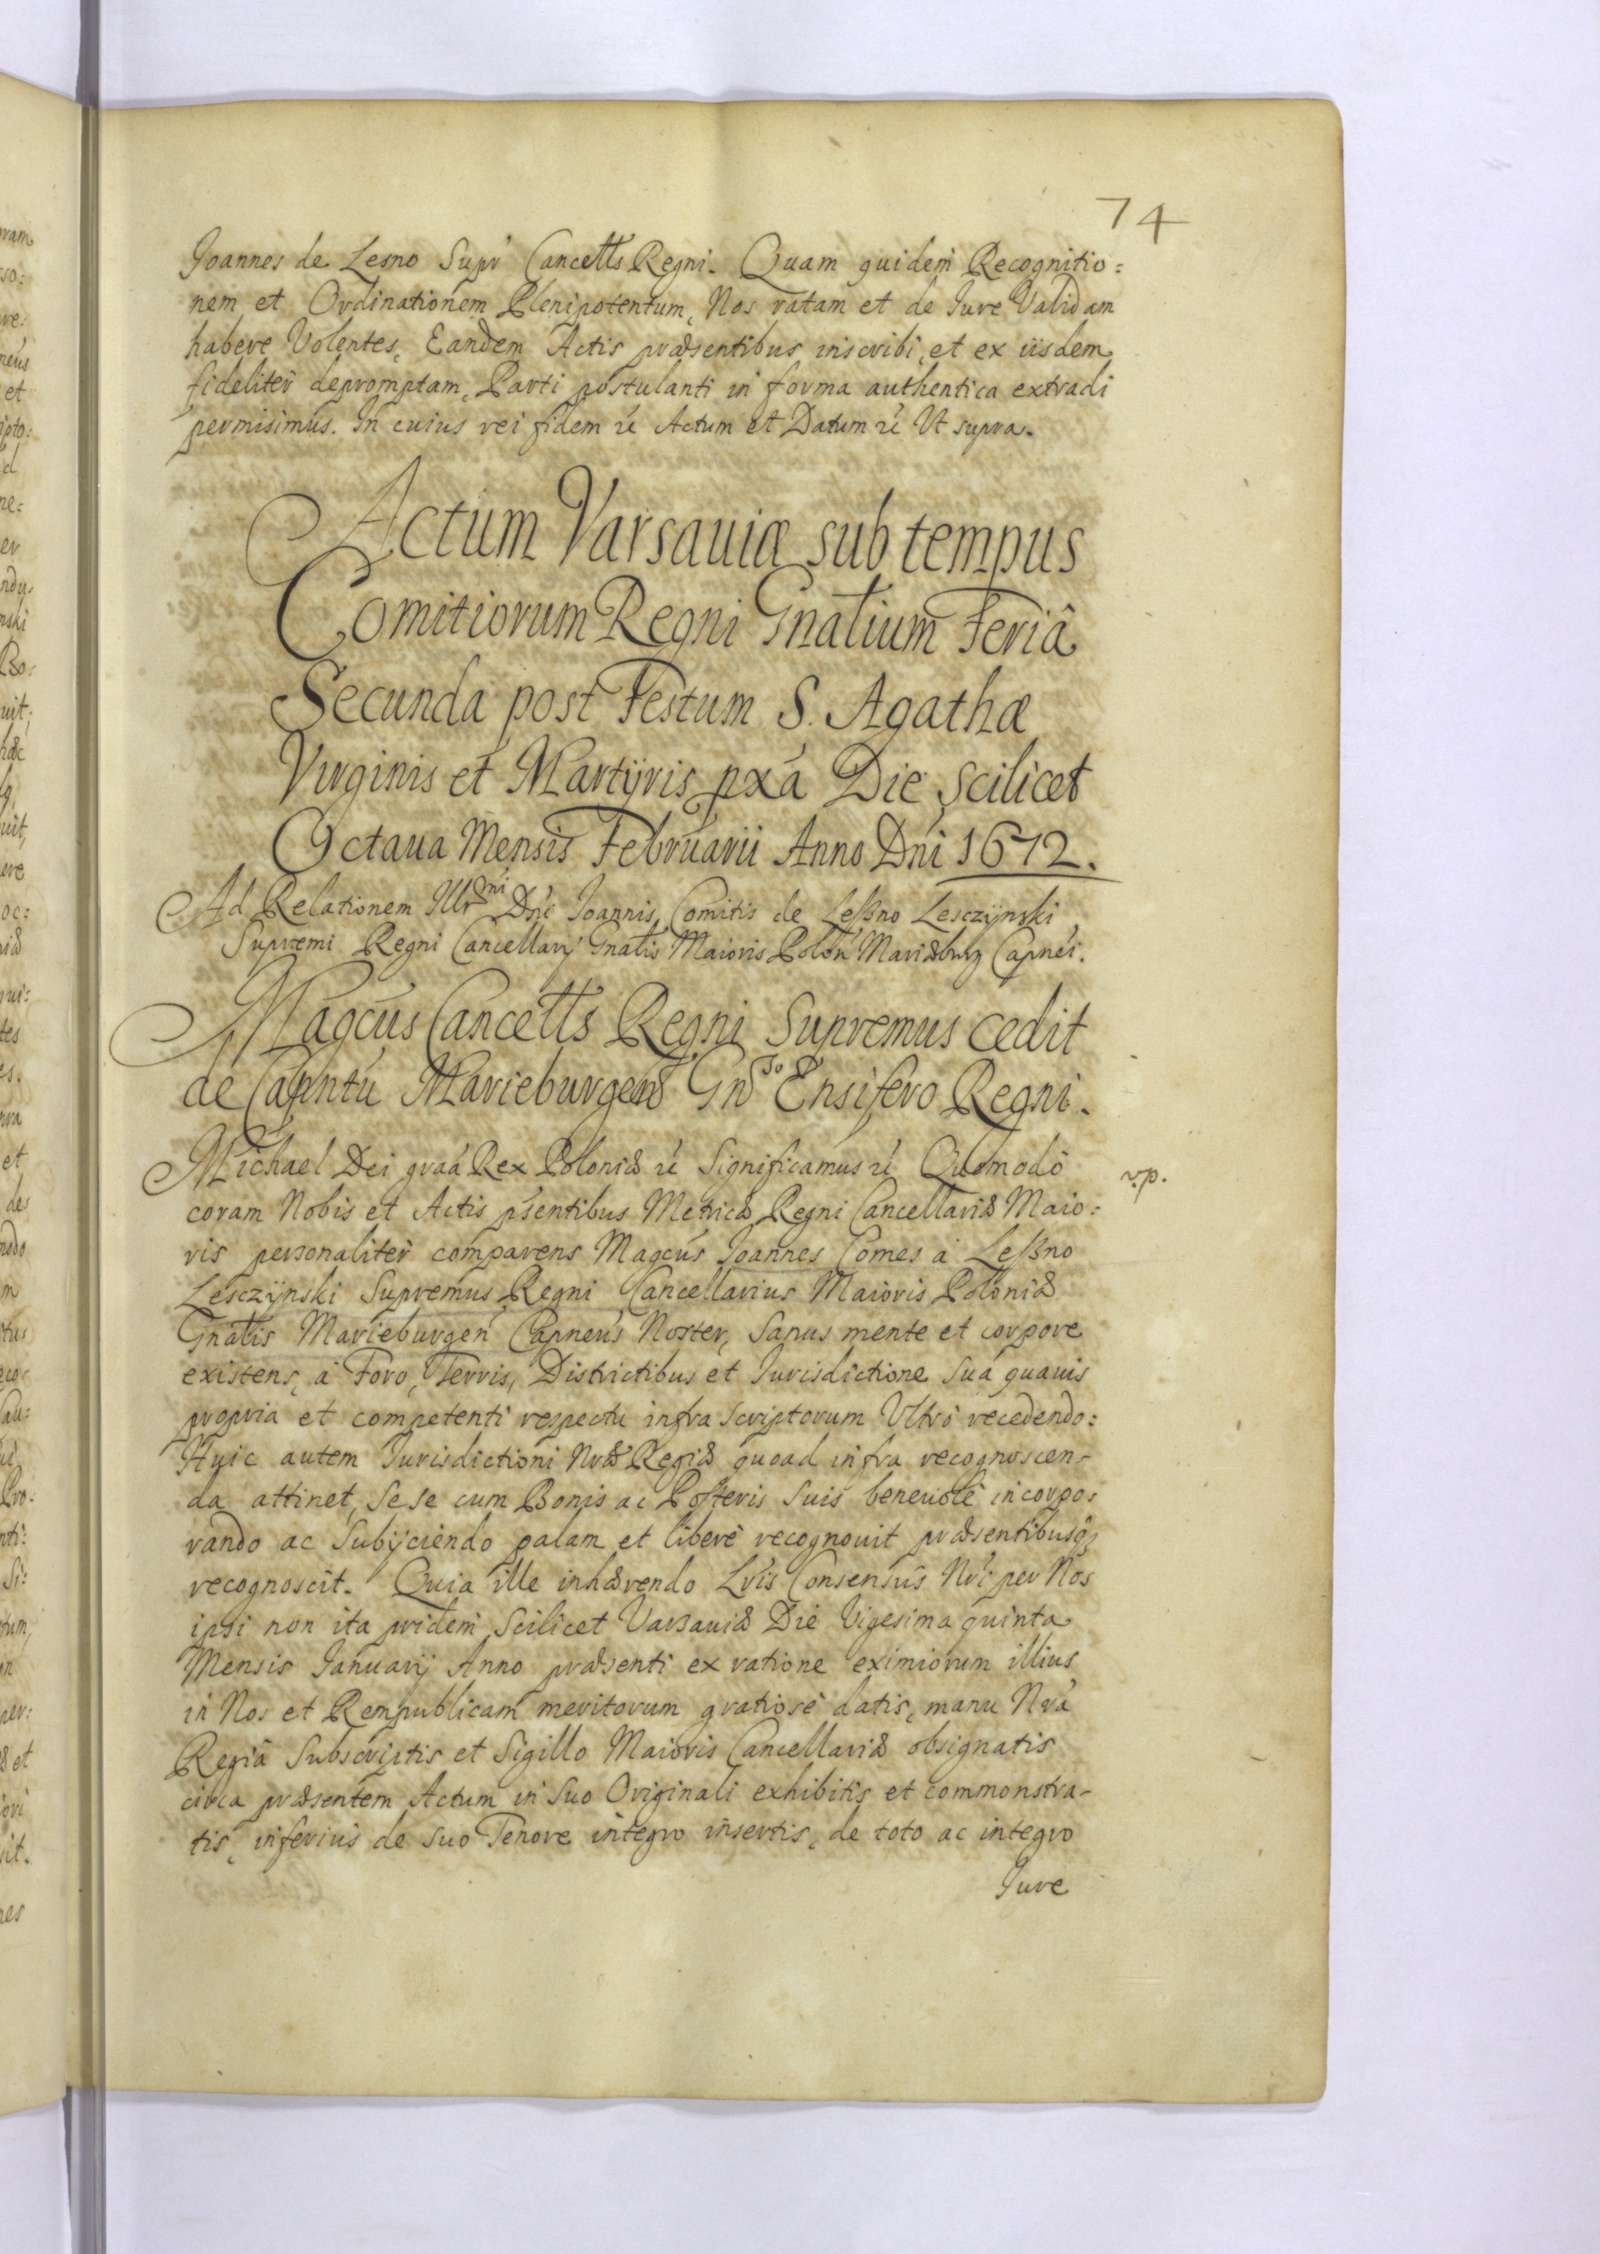 74
Joannes de Lesno Supr Cancells Regni. Quam quidem Recognitio:
nem et Ordinationem Plenipotentum, Nos ratam et de Iure Validam
habere Volentes, Eandem Actis præsentibus inscribi, et ex iisdem
fideliter depromptam, Parti postulanti in forma authentica extradi
permisimus. In cuius rei fidem &c Actum et Datum &c Ut supra.
Actum Varsaviæ sub tempus
Comitiorum Regni Gnalium Feriâ
Secunda post Festum S. Agathæ
Virginis et Martÿris pxá Die scilicet
Octaua Mensis Februarii Anno Dni 1672.
Ad Relationem Illrmi Dni Joannis Comitis de Leßno Lesczÿnski
Supremi Regni Cancellarij Gnalis Maioris Polon Mariæburg Capnei.
Magcus Cancells Regni Supremus cedit
de Capntu Marieburgens Gndo Ensifero Regni.
Michael Dei graa Rex Poloniæ &c Significamus &c Quomodo
v.p.
coram Nobis et Actis psentibus Metricæ Regni Cancellariæ Maio:
ris personaliter comparens Magcus Joannes Comes à Leßno
Lesczÿnski Supremus Regni Cancellarius Maioris Poloniæ
Gnalis Marieburgen Capneus Noster, sanus mente et corpore
existens, à Foro, Terris, Districtibus et Iurisdictione Suá quauis
propria et competenti respectu infra scriptorum Ultrò recedendo:
Huic autem Iurisdictioni Nræ Regiæ quoad infra recognoscen-
da attinet, se se cum Bonis ac Posteris suis beneuolè incorpo:
rando ac Subijciendo palam et liberè recognouit præsentibusq
recognoscit. Quia ille inhærendo Lris Consensus Nri per Nos
ipsi non ita pridem, scilicet Varsauiæ Die Vigesima quinta
Mensis Januarij Anno præsenti ex ratione eximiorum illius
in Nos et Rempublicam meritorum gratiosè datis, manu Nrá
Regiâ Subscriptis et Sigillo Maioris Cancellariæ obsignatis
circa præsentem Actum in Suo Originali exhibitis et commonstra-
tis, inferius de Suo Tenore integro insertis, de toto ac integro
Iure